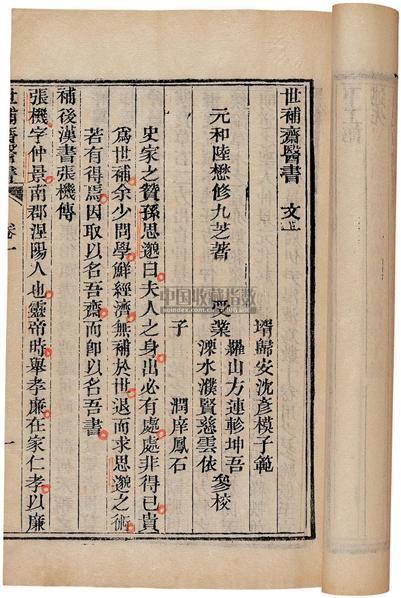 世補齋醫書 文
壻歸安沈彥模子範
元和陸懋修九芝著 受業 羅山方連軫坤吾
溧水濮賢慈雲依 參校
子 潤庠鳳石
史家之贊孫思邈曰夫人之身出必有處處非得已貴
爲世補余少問學鮮經濟無補於世退而求思邈之術
若有得焉因取以名吾齋而即以名吾書
補後漢書張機傳
張機字仲景南郡涅陽人也靈帝時舉孝廉在家仁孝以廉
世補齋醫書 卷一 一
中国收藏指数